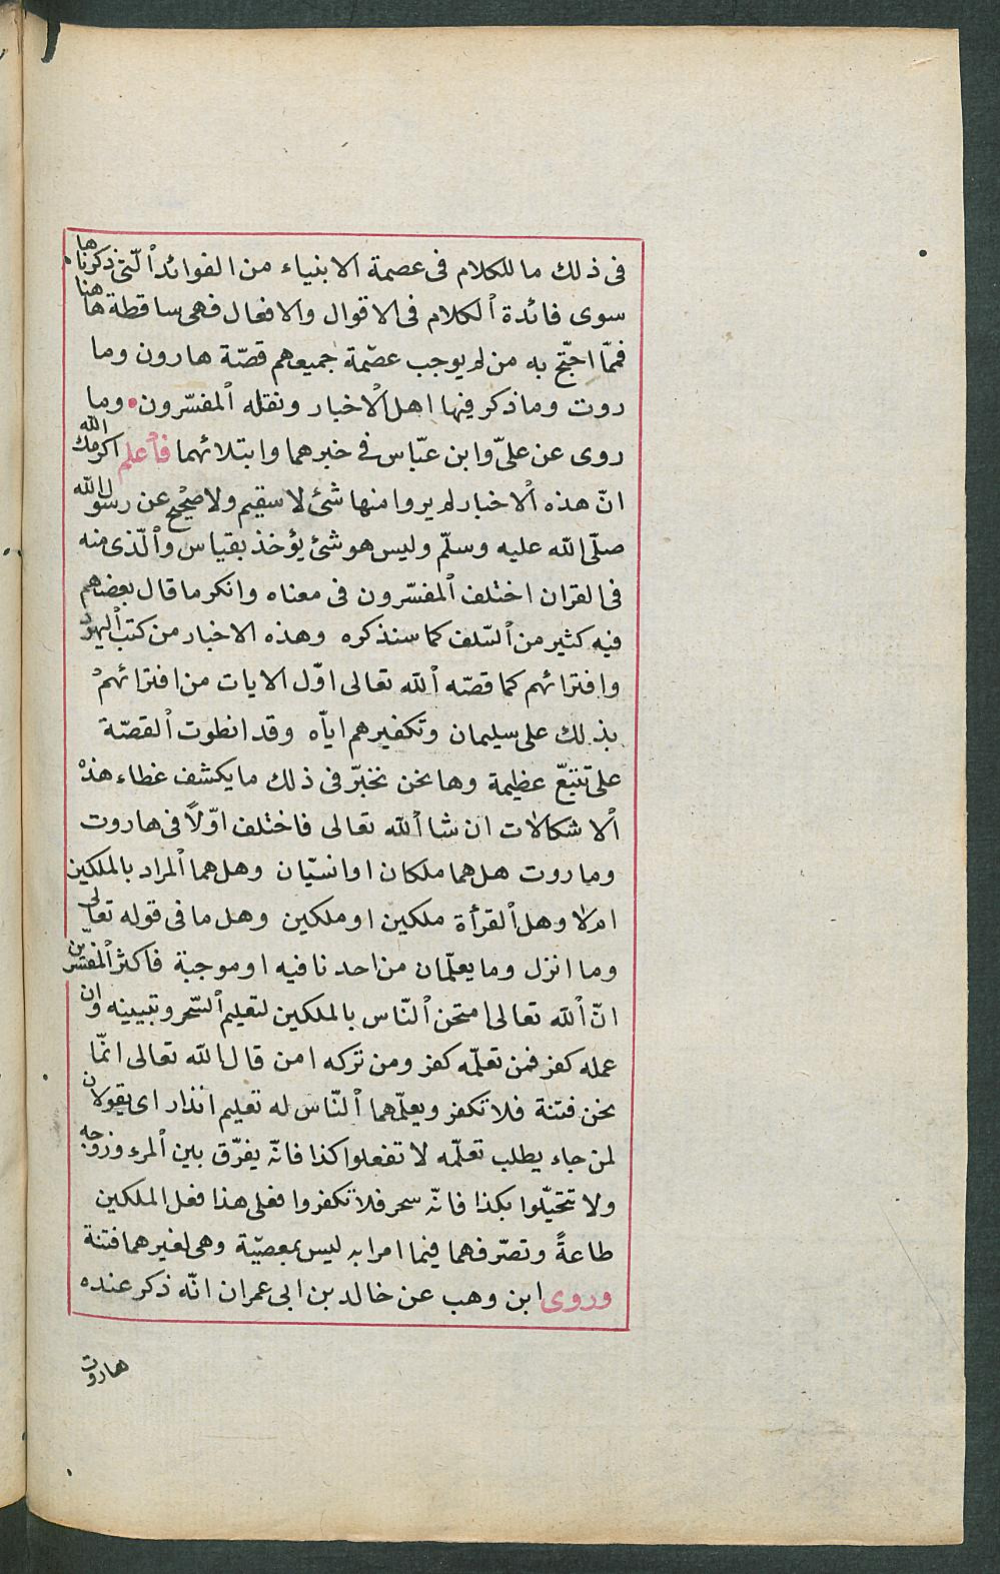 فى ذلك ما للكلام فى عصمة الانبياء من الفوائد ٱلّتى ذكرناها
سوى فائدة ٱلكلام فى الاقوال والافعال فهى ساقطة هاهنا
فممّا احتّج به من لم يوجب عصّمة جميعهم قصّة هارون وما
روت وما ذكر فيها اهل ٱلاخبار ونقله ٱلمفسّرون • وما
روى عن علىّ وابن عبّاس فى خبرهما وابتلائهما فٱعلم اكرمك الله
انّ هذه ٱلاخبار لم يروا منها شئ لا سقيم ولا صحيح عن رسول الله
صلّى الله عليه وسلّم وليس هو شئ يؤخذ بقياس وٱلّذى منه
فى القران اختلف ٱلمفسّرون فى معناه وانكر ما قال بعضهم
فيه كثير من ٱلسّلف كما سنذكره وهذه الاخبار من كتب ٱليهود
وافترائهم كما قصّه ٱلله تعالى اوّل الايات من افترائهم
بذلك على سليمان وتكفيرهم ايّاه وقد انطوت ٱلقصّة
على تتبّع عظيمة وها نحن نخبّر فى ذلك ما يكشف غطاء هذه
ٱلاشكالات ان شا ٱلله تعالى فاختلف اوّلاً فى هاروت
وماروت هل هما ملكان او انسيّان وهل هما ٱلمراد بالملكين
ام لا وهل ٱلقرأة ملكين او ملكين وهل ما فى قوله تعالى
وما انزل وما يعلّمان من احد نافيه او موجبة فاكثر ٱلمفسّرين
انّ ٱلله تعالى امتحن ٱلنّاس بالملكين لتعليم ٱلسّحر وتبيينه وان
عمله كفر فمن تعلّمه كفر ومن تركه امن قال الله تعالى انّما
نحن فتنة فلا تكفر ويعلّمهما ٱلنّاس له تعليم انذار اى يقولان
لمن جاء يطلب تعلّمه لا تفعلوا كذا فانّه يفرّق بين ٱلمرء وزوجه
ولا تتحيّلوا بكذا فانّه سحر فلا تكفروا فعلى هذا فعل الملكين
طاعةً وتصرّفهما فيما امرا به ليس بمعصيّة وهى لغيرهما فتنة
وروى ابن وهب عن خالد بن ابى عمران انّه ذكر عنده
هاروت